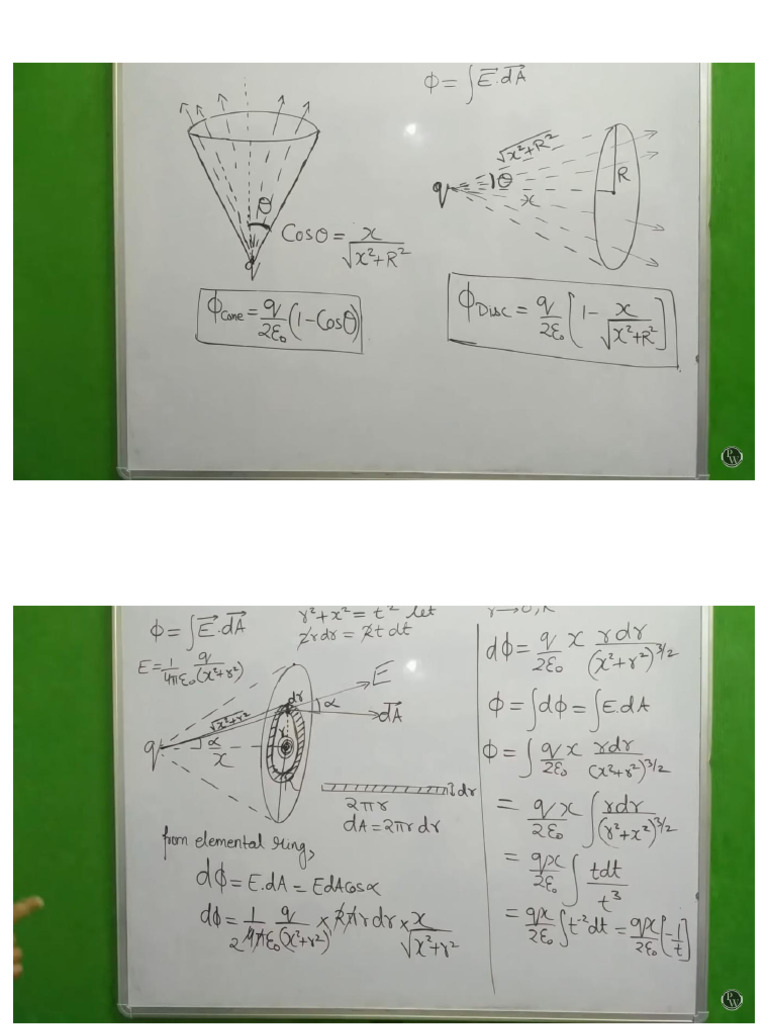 ϕ = ∫ E⃗.dA⃗
√x²+R²
θ
R
q
x
θ
Cosθ = x/√x²+R²
q
ϕCone = q/2ε₀ (1 - Cosθ)
ϕDisc = q/2ε₀ [1 - x/√x²+R²]
PW
ϕ = ∫ E⃗.dA⃗
r²+x² = t² let
2rdr = 2t dt
E = 1/4πε₀ q/(x²+r²)
E
dr
α
dA⃗
√x²+r²
r
q
α
x
dr
2πr
dA = 2πr dr
from elemental ring,
dϕ = E.dA = EdAcosα
dϕ = 1/4πε₀ q/(x²+r²) × 2πrdr × x/√x²+r²
2
dϕ = q x/2ε₀ rdr/(x²+r²)^3/2
ϕ = ∫dϕ = ∫E.dA
ϕ = ∫ q x/2ε₀ rdr/(x²+r²)^3/2
= q x/2ε₀ ∫ rdr/(r²+x²)^3/2
= qx/2ε₀ ∫ tdt/t³
= qx/2ε₀ ∫ t⁻² dt = qx/2ε₀ [-1/t]
PW